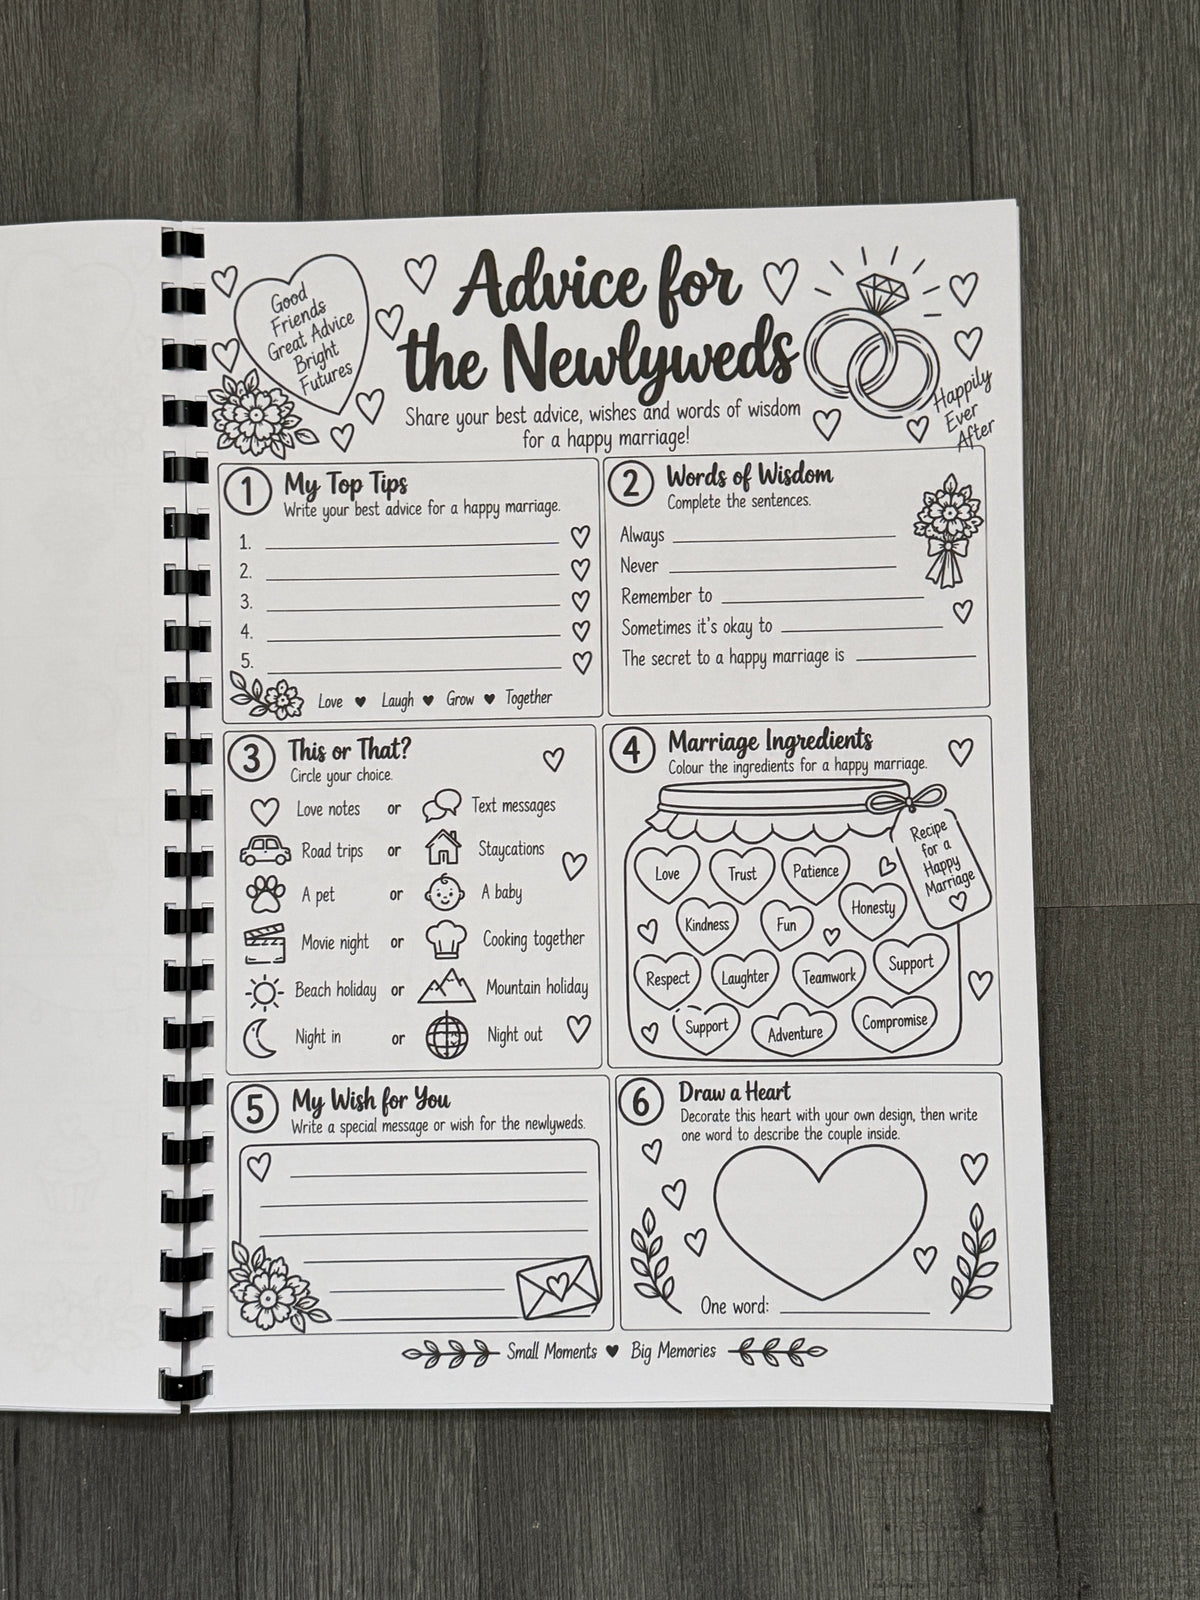 Good
Friends
Great Advice
Bright
Futures
Advice for
the Newlyweds
Share your best advice, wishes and words of wisdom
for a happy marriage!
Happily
Ever
After
1 My Top Tips
Write your best advice for a happy marriage.
1.
2.
3.
4.
5.
Love ♥ Laugh ♥ Grow ♥ Together
2 Words of Wisdom
Complete the sentences.
Always
Never
Remember to
Sometimes it's okay to
The secret to a happy marriage is
3 This or That?
Circle your choice.
Love notes or Text messages
Road trips or Staycations
A pet or A baby
Movie night or Cooking together
Beach holiday or Mountain holiday
Night in or Night out
4 Marriage Ingredients
Colour the ingredients for a happy marriage.
Recipe
for a
Happy
Marriage
Love Trust Patience
Kindness Fun Honesty
Respect Laughter Teamwork Support
Support Adventure Compromise
5 My Wish for You
Write a special message or wish for the newlyweds.
6 Draw a Heart
Decorate this heart with your own design, then write
one word to describe the couple inside.
One word:
Small Moments ♥ Big Memories